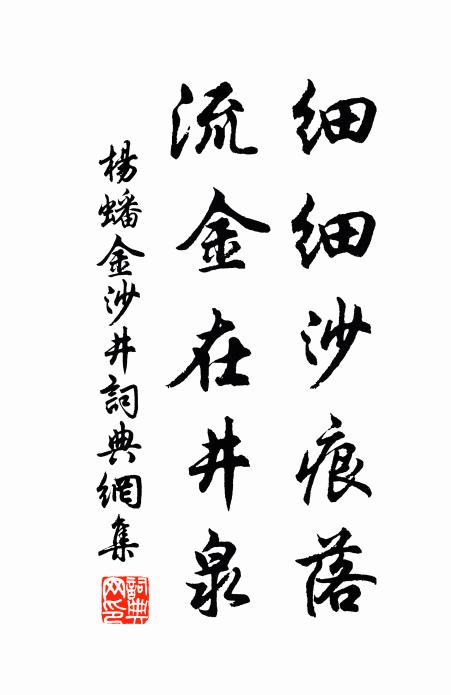 細細沙痕落
流金在井泉
楊蟠金沙井詞典網集
詞典网印